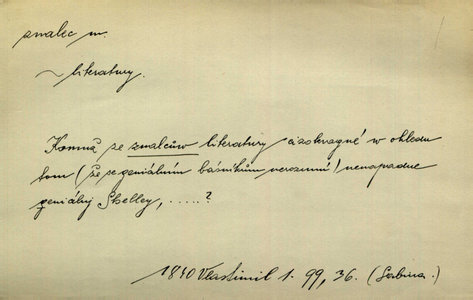 znalec m.
~ literatury.
Komuž ze znalcůw literatury cizokragné w ohledu
tom (že se geniálním básníkům nerozumí) nenapadne
geniálný Shelley, .....?
1840 Vlastimil 1. 99, 36. (Sabina.)